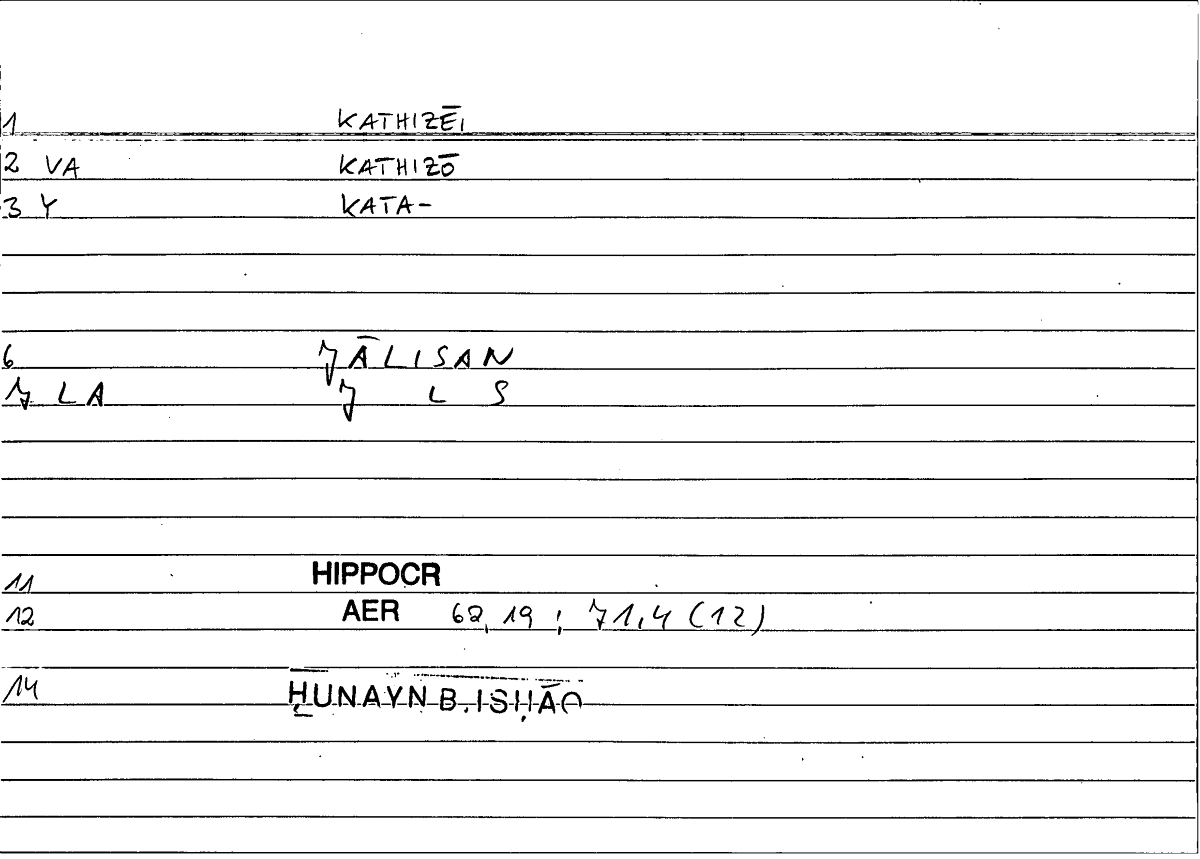 1 KATHIZĒI
2 VA KATHIZŌ
3 Y KATA-
6 JĀLISAN
7 LA J L S
11 HIPPOCR
12 AER 62,19 ; 71,4 (12)
14 ḤUNAYN B. ISḤĀQ